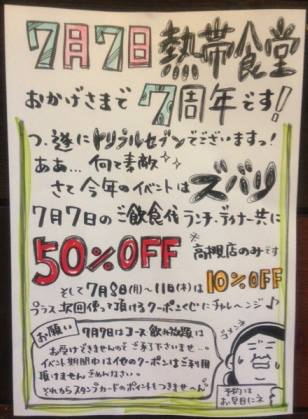 7月7日 熱帯食堂
おかげさまで 7周年です!
つ、遂にトリプルセブンでございますっ!
ああ… 何て素敵
さて今年のイベントは ズバリ
7月7日のご飲食代 ランチ・ディナー共に
50%OFF ※高槻店のみです
そして7月8日(月)〜11日(木)は 10%OFF
プラス次回使って頂けるクーポンくじにチャレンジ♪
お願い
7月7日はコース、飲み放題は
お受けできませんのでご了承下さいませ…。
イベント期間中は他のクーポンはご利用
頂けません。ごめんなさい。
それからスタンプカードのポイントもつきません。
予約は
お早目にネ